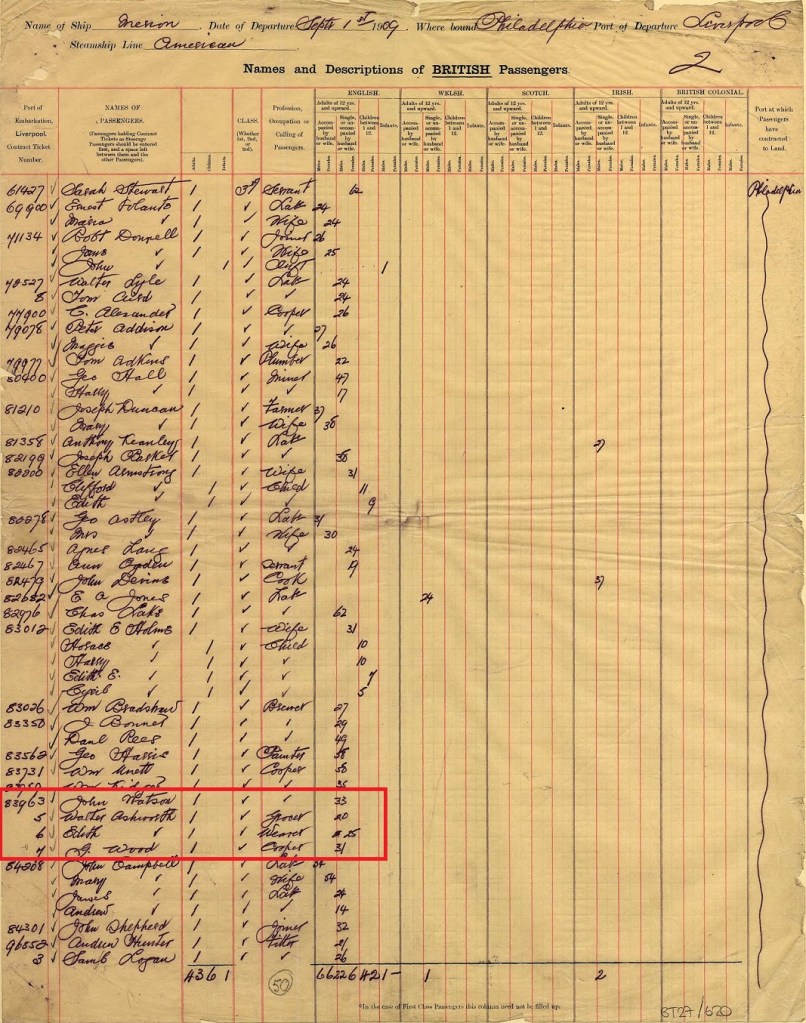 Name of Ship Merion Date of Departure Septr 1st 1909 Where bound Philadelphia Port of Departure Liverpool
Steamship Line American
Names and Descriptions of BRITISH Passengers
2
ENGLISH. WELSH. SCOTCH. IRISH. BRITISH COLONIAL.
Port of Embarkation, Liverpool. Contract Ticket Number.
NAMES OF PASSENGERS.
(Passengers holding Contract Tickets as Passenger Passengers should be entered first, and a space left between them and the other Passengers).
Adults. Children. Infants.
CLASS. (Whether 1st, 2nd, or 3rd).
Profession, Occupation or Calling of Passengers.
Adults of 12 yrs. and upward. Children between 1 and 12. Infants.
Accompanied by husband or wife. Single, or unaccompanied by husband or wife.
Males. Females.
Port at which Passengers have contracted to Land.
61427 Sarah Stewart 1 3rd Servant 62 Philadelphia
69900 Ernest 1 ✓ Lab 24
Maria ✓ 1 ✓ Wife 24
71134 Robt Donnell 1 ✓ Joiner 26
Jane ✓ 1 ✓ Wife 25
John ✓ 1 ✓ 1
78527 Walter Lyle 1 ✓ Lab 24
8 Tom Aird 1 ✓ ✓ 24
77900 C. Alexander 1 ✓ Cooper 26
79078 Peter Addison 1 ✓ ✓ 27
Maggie ✓ 1 ✓ Wife 26
79977 Tom Adkins 1 ✓ Plumber 22
80400 Geo Hall 1 ✓ Miner 47
Harry ✓ 1 ✓ ✓ 17
81210 Joseph Duncan 1 ✓ Farmer 37
Mary ✓ 1 ✓ Wife 38
81358 Anthony 1 ✓ Lab 27
82199 Joseph 1 ✓ ✓ 38
80800 Ellen Armstrong 1 ✓ Wife 31
Clifford ✓ 1 ✓ Child 11
Edith ✓ 1 ✓ ✓ 9
80878 Geo Astley 1 ✓ Lab 31
Mrs ✓ 1 ✓ Wife 30
82465 Agnes Lang 1 ✓ ✓ 24
82467 Ann Ogden 1 ✓ Servant 19
82479 John Devine 1 ✓ Cook 37
82682 E A Jones 1 ✓ Lab 24
82976 Chas Lake 1 ✓ ✓ 62
83012 Edith E Holms 1 ✓ Wife 31
Horace ✓ 1 ✓ Child 10
Harry ✓ 1 ✓ ✓ 10
Edith E. ✓ 1 ✓ ✓ 7
Cyril ✓ 1 ✓ ✓ 5
83026 Wm Bradshaw 1 ✓ Brewer 27
83350 J Bonner 1 ✓ ✓ 29
Danl Rees 1 ✓ ✓ 49
83562 Geo Harris 1 ✓ Painter 38
83731 Wm Knett 1 ✓ Cooper 58
Wm 1 ✓ ✓ 35
83963 John Watson 1 ✓ ✓ 33
5 Walter Ashworth 1 ✓ Grocer 20
6 Edith ✓ 1 ✓ Weaver 25
7 G. Wood 1 ✓ Cooper 31
84268 John Campbell 1 ✓ Lab 54
Mary ✓ 1 ✓ Wife 54
James ✓ 1 ✓ Lab 24
Andrew ✓ 1 ✓ ✓ 14
84301 John Shepherd 1 ✓ Joiner 32
96552 Andrew Hunter 1 ✓ Fitter 21
3 Saml Logan 1 ✓ ✓ 26
43 6 1 50 6 6 22 6 4 2 1 - 1 2
*In the case of First Class Passengers this column need not be filled up.
BT27/620